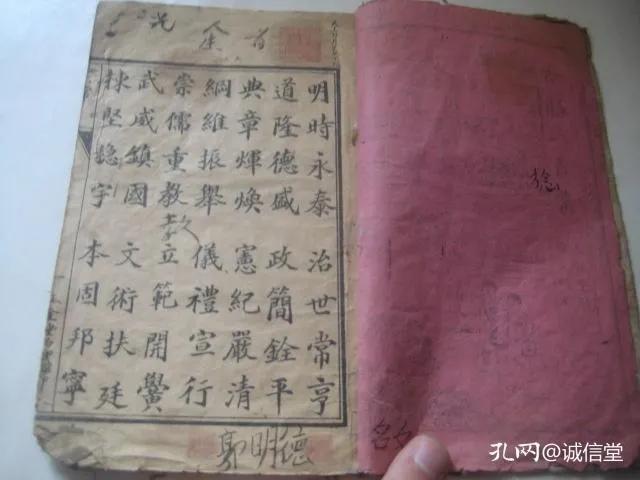 明時永泰 治世常亨
道隆德盛 政簡銓平
典章煇煥 憲紀嚴清
綱維振舉 儀禮宣行
崇儒重教 立範開黌
教
武威鎮國 文術扶廷
堅 本固邦寧
郭明德
孔网@诚信堂